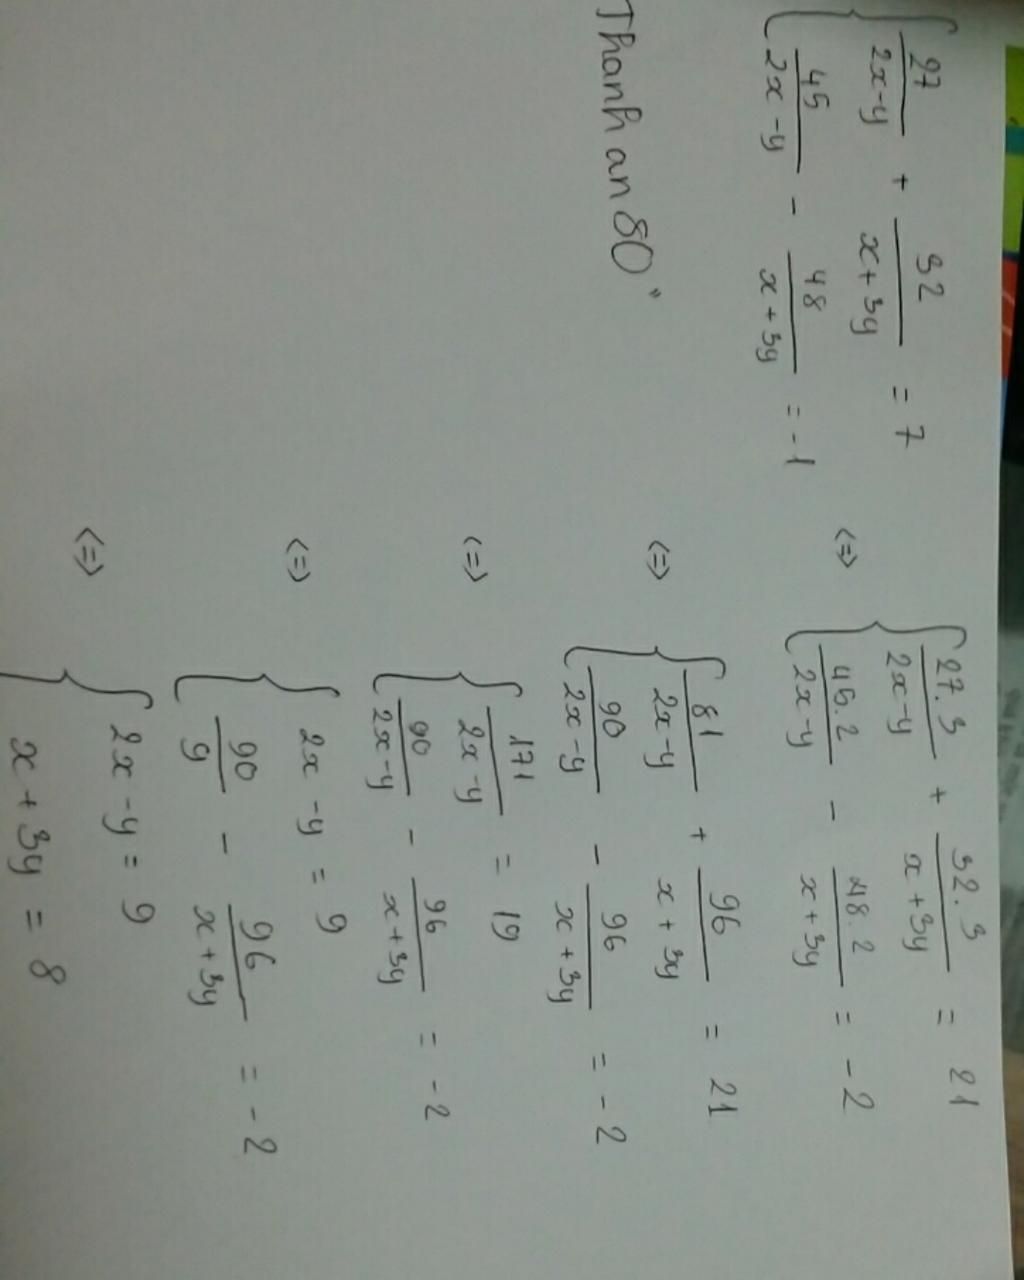 27/(2x-y) + 32/(x+3y) = 7
45/(2x-y) - 48/(x+3y) = -1
Thanh an 80"
<=> 27.3/(2x-y) + 32.3/(x+3y) = 21
45.2/(2x-y) - 48.2/(x+3y) = -2
<=> 81/(2x-y) + 96/(x+3y) = 21
90/(2x-y) - 96/(x+3y) = -2
<=> 171/(2x-y) = 19
90/(2x-y) - 96/(x+3y) = -2
<=> 2x-y = 9
90/9 - 96/(x+3y) = -2
<=> 2x-y = 9
x+3y = 8